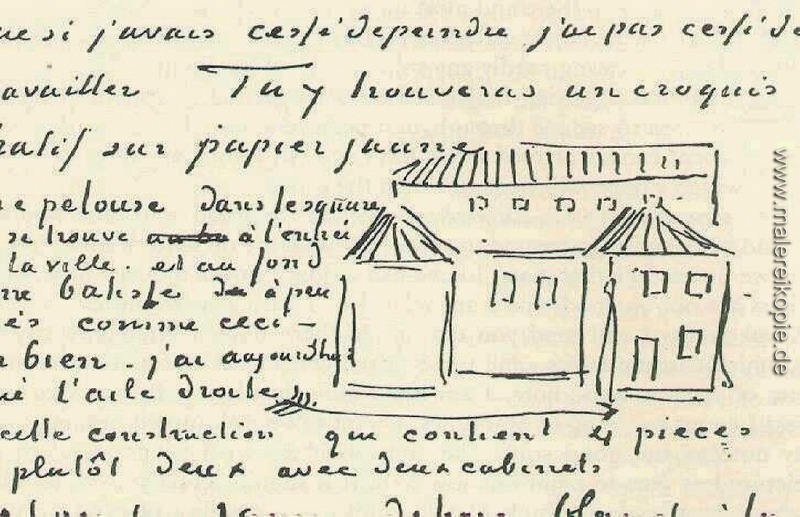 ue si j'avais cessé de peindre j'ai pas cessé de
availler Tu y trouveras un croquis
hatif sur papier jaune
e pelouse dans le square
se trouve à l'entrée
la ville. et au fond
une batisse à peu
ès comme ceci -
bien. j'ai aujourdhui
ué l'aile droite
cette construction qui contient 4 pieces
plutôt deux avec deux cabinets
www.malereikopie.de